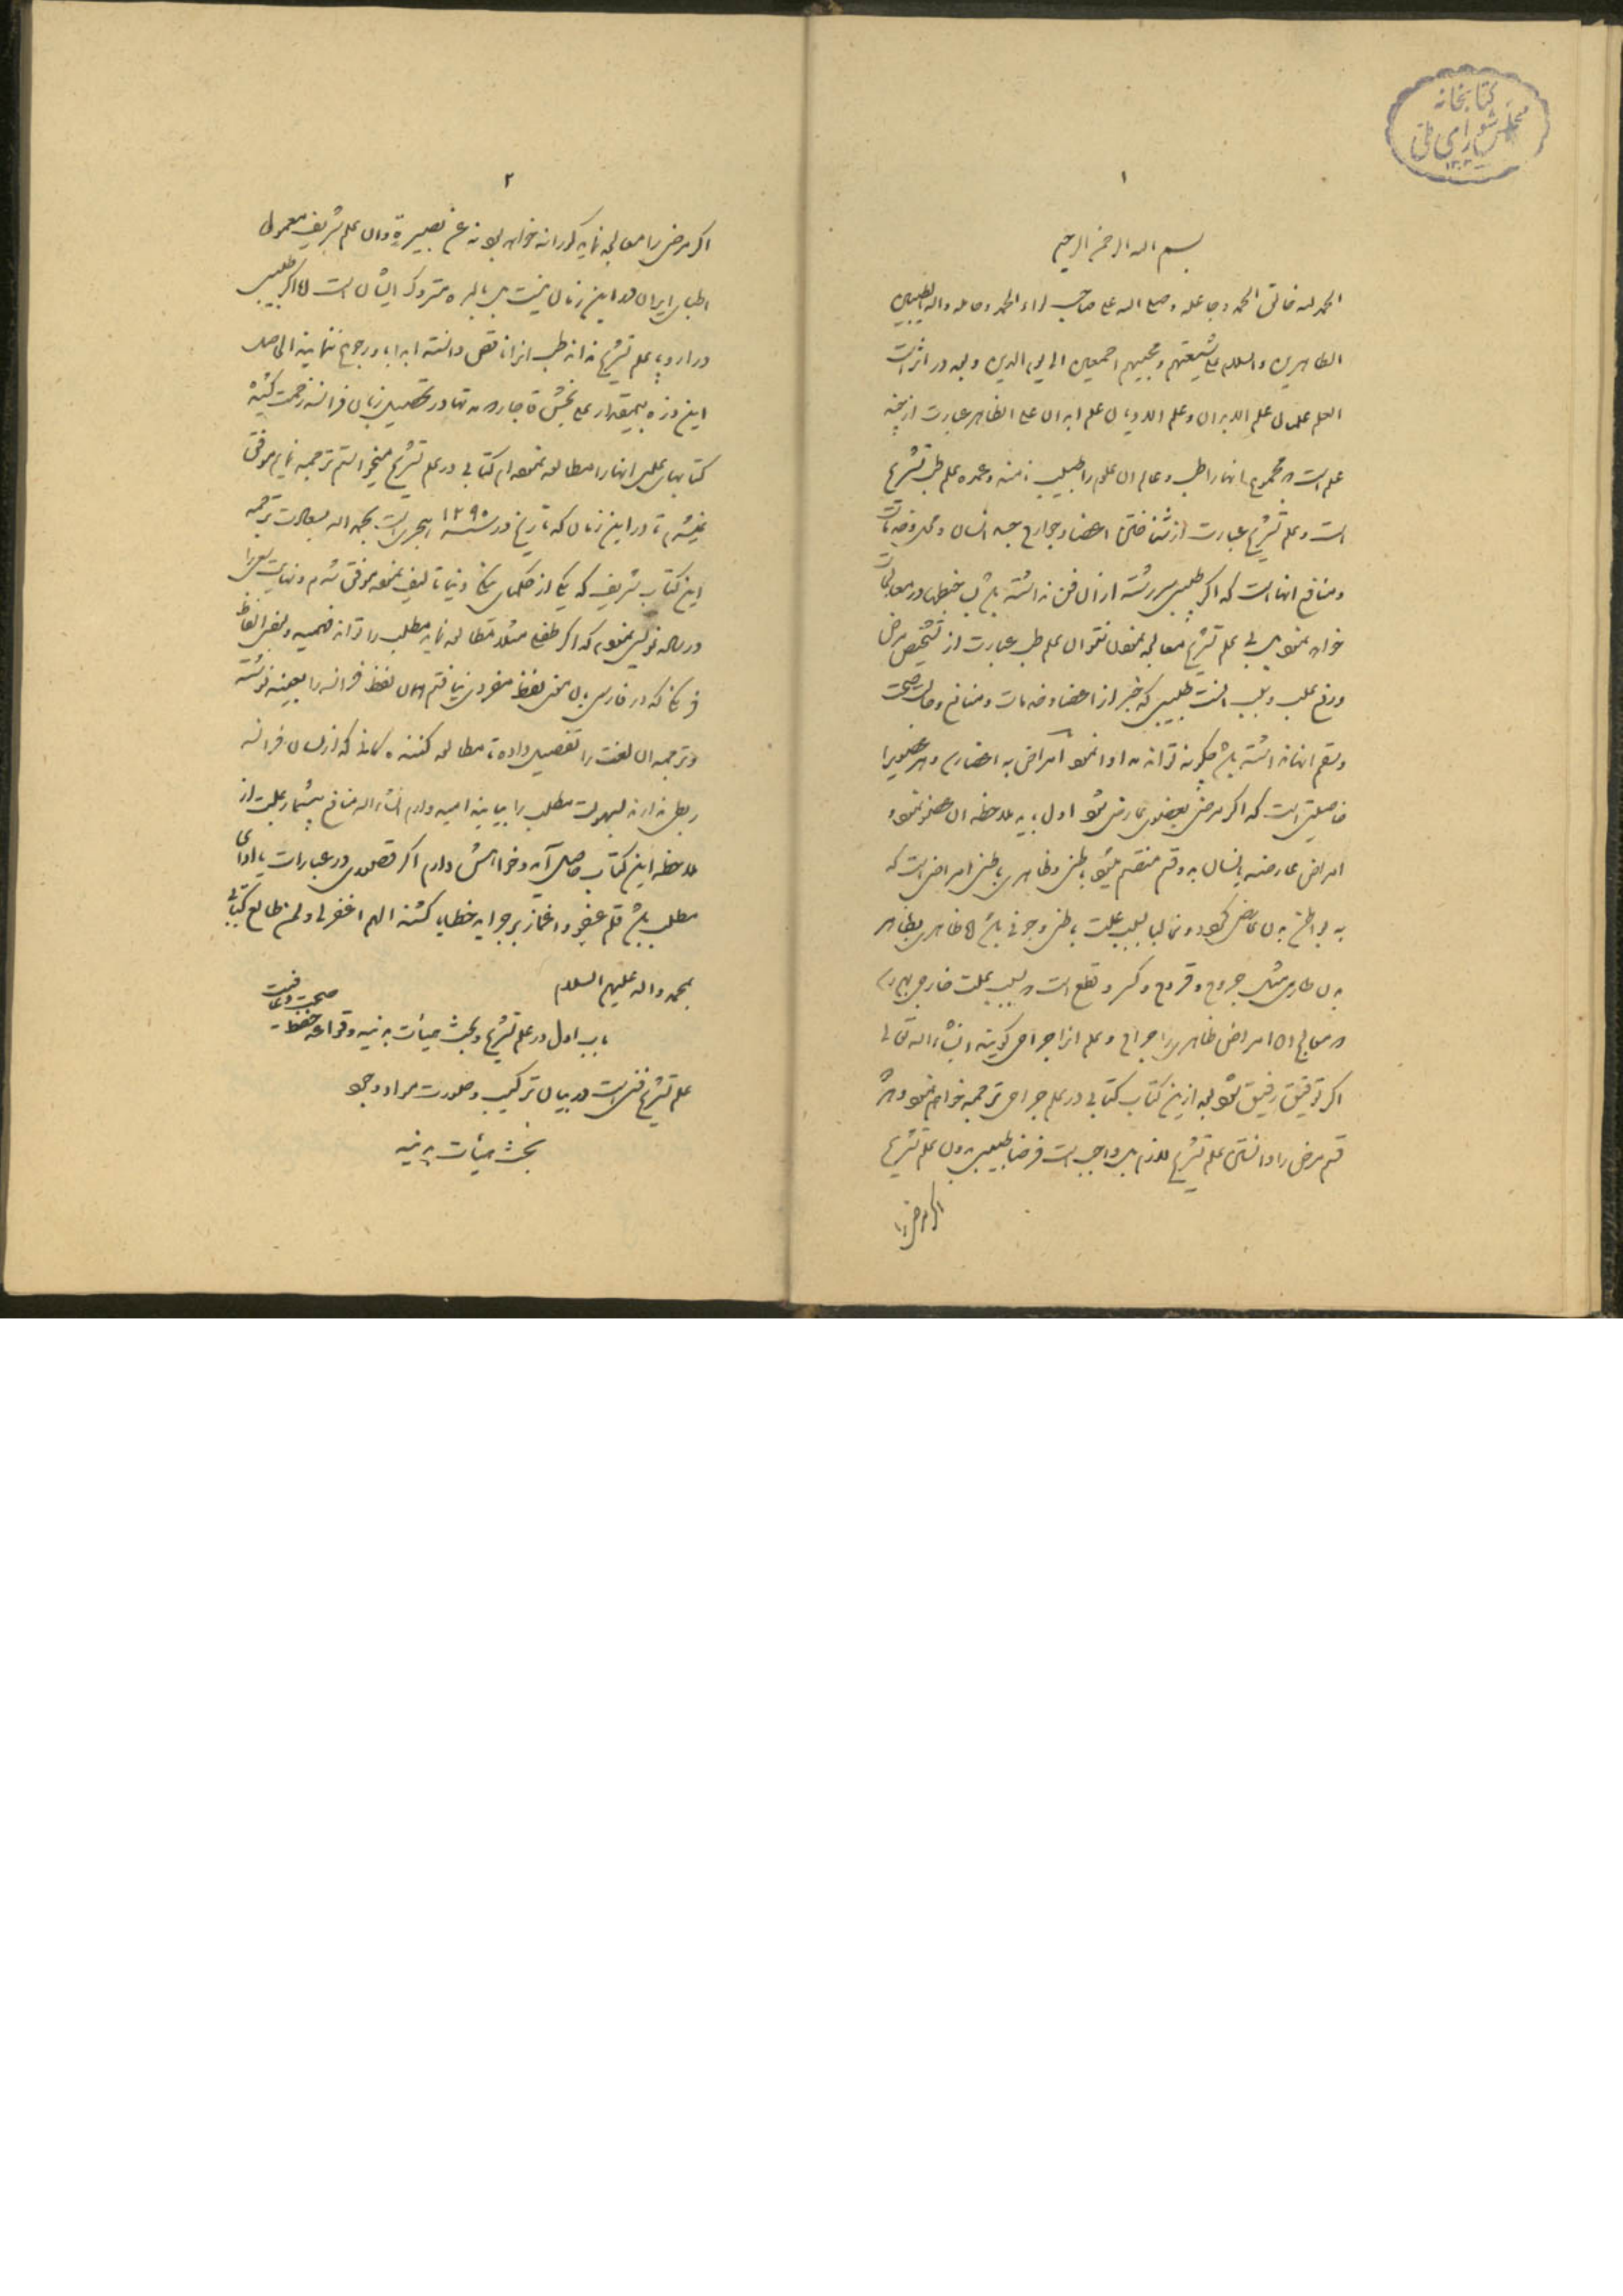 کتابخانه
مجلس شورای ملی
۱
بسم الله الرحمن الرحیم
الحمد لله خالق الحمد و جاعله و صلی الله علی صاحب لواء الحمد و حامله و اله الطیبین
الطاهرین والسلام علی شیعتهم و محبیهم اجمعین الی یوم الدین و بعد در اثر است
العلم علمان علم الابدان و علم الادیان علم ابدان علی الظاهر عبارت از پنج
علم است که مجموع انها را طب و عالم ان علوم را طبیب نامند و عمده علم طب تشریح
است و علم تشریح عبارت از شناختن اعضا و جوارح جسد انسان و محل و خدمات
و منافع انهاست که اگر طبیب سررشته از ان فن نداشته باشد خبطها در معالجات
خواهد نمود پس بی علم تشریح معالجه نمودن نتوان علم طب عبارت از تشخیص مرض
و رفع علت و سبب انست طبیبی که خبر از اعضا و خدمات و منافع و حالت صحت
و سقم انها نداشته باشد چگونه تواند مداوا نمود امراض به اعضا و هر عضویرا
خاصیتی است که اگر مرض بعضوی عارض شود اول باید ملاحظه ان عضو نمود
امراض عارضه بانسان بدو قسم منقسم میشود باطنی و ظاهری باطنی امراضی است که
به بواطن بدن عارض گردد و غالبا بسبب علت باطنی و جوفی باشد اما ظاهری بظاهر
بدن طاری مثل جروح و قروح و کسر و قطع است که بسبب علت خارجی بهم رسد
که معالج ان امراض ظاهری را جراح و علم انرا جراحی گویند و انشاء الله تعالی
اگر توفیق رفیق شود بعد ازین کتاب کتابی در علم جراحی ترجمه خواهم نمود و هر دو
قسم مرض را دانستن علم تشریح لازم بل واجب است فرضا طبیب بدون علم تشریح
اگر مرض را
۲
اگر مرض را معالجه نماید کورانه خواهد بود نه عن بصیرة و ان علم شریف معمول
اطبای ایران در این زمان نیست بل بالمره متروک ایشان است اما اگر طبیب
در اروپا علم تشریح نداند طب انرا ناقص دانسته ابدا باو رجوع ننمایند الحاصل
این ذره بیمقدار علی بخش قاجار که مدتها در تحصیل زبان فرانسه زحمت کشیده
کتابهای علمی انها را مطالعه نموده ام کتابی در علم تشریح میخواستم ترجمه نمایم موفق
نمیشدم تا در این زمان که تاریخ در سنه ۱۲۹۵ هجری است بحمد الله بسعادت ترجمه
این کتاب شریف که یکی از حکمای فرنگ تالیف نموده موفق شدم و نهایت سعی را
در ساده نویسی نموده که اگر طفلی مثلا مطالعه نماید مطلب را تواند فهمید و بعضی الفاظ
فرنگی که در فارسی بدان معنی لفظ مفردی نیافتم همان لفظ فرانسه را بعینه نوشته
و ترجمه ان لغت را تفصیل داده تا مطالعه کننده کسانی که از لسان فرانسه
ربطی ندارند بسهولت مطلب را بیابند امید دارم انشاء الله منافع بیشمار بملت از
ملاحظه این کتاب حاصل آید و خواهش دارم اگر قصوری در عبارات یا ادای
مطلب باشد قلم عفو و اغماز بر جراید خطایا کشند اللهم اغفر لی و لمن طالع کتابی
بمحمد و اله علیهم السلام
باب اول در علم تشریح و بحث هیأت بدنیه و قواعد حفظ صحت و عافیت
علم تشریح فنی است در بیان ترکیب و صورت مواد وجود
بحث هیأت بدنیه